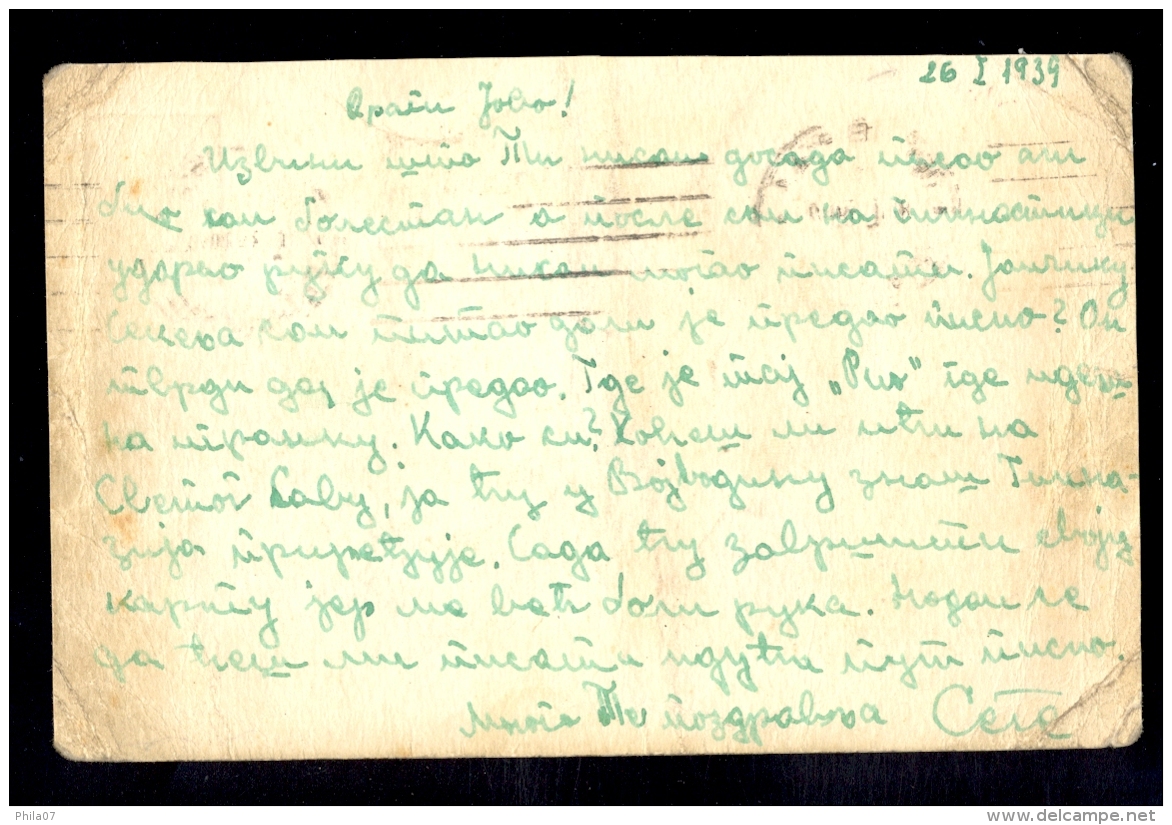 26 I 1939
Драги Јово!
Извини што Ти нисам досада писао али
био сам болестан а после сам на гимнастици
ударао руку да нисам могао писати. Јанчику
сам питао дали је предао писмо? Он
тврди да је предао. Где је тај „Рип" где идеш
на праксу. Како си? Хоћеш ли ићи на
Светог Саву, ја ћу у Војводину знаш Гимна-
зија приређује. Сада ћу завршити своју
карту јер ме већ боли рука. Надам се
да ћеш ми писати идући пут писмо.
Много Те поздравља
Phila07
www.delcampe.net